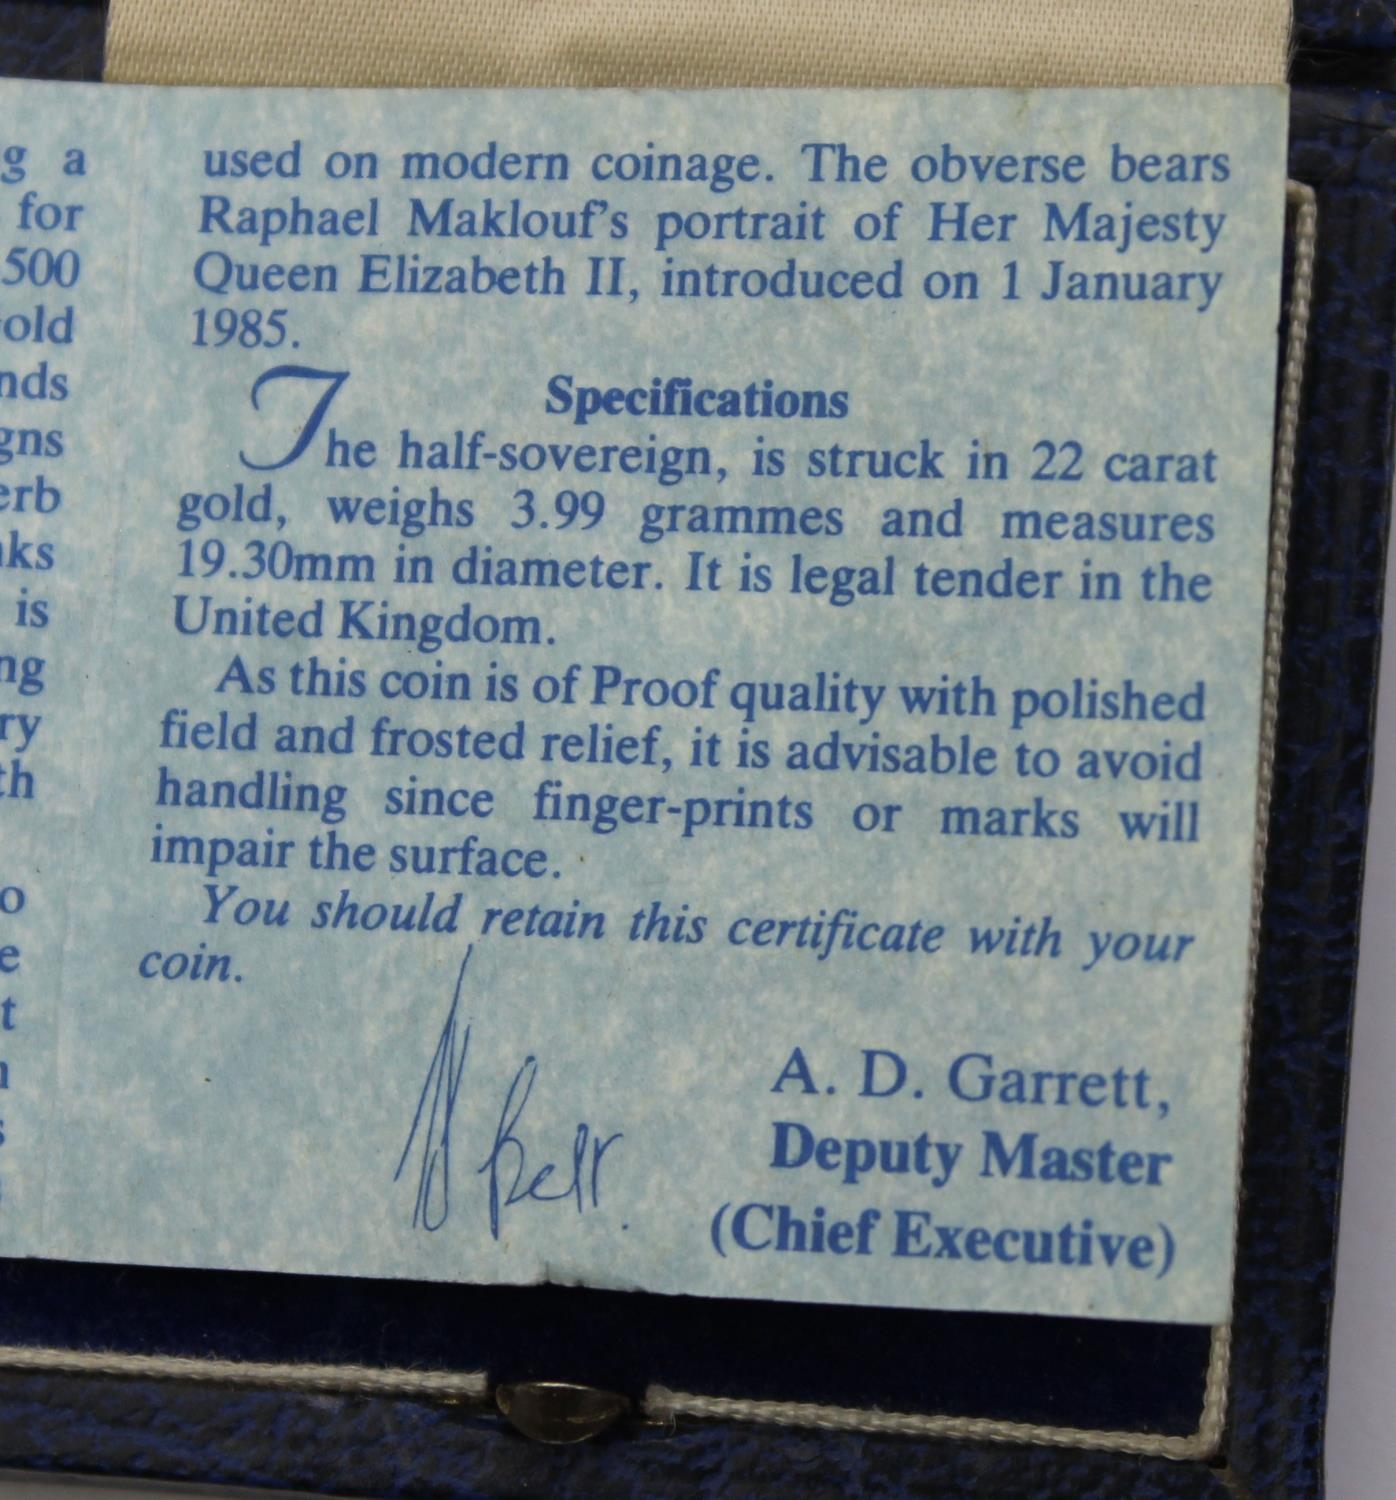 g a
for
500
old
nds
gns
erb
ks
is
ng
ry
th
o
e
t
used on modern coinage. The obverse bears
Raphael Maklouf's portrait of Her Majesty
Queen Elizabeth II, introduced on 1 January
1985.
Specifications
The half-sovereign, is struck in 22 carat
gold, weighs 3.99 grammes and measures
19.30mm in diameter. It is legal tender in the
United Kingdom.
As this coin is of Proof quality with polished
field and frosted relief, it is advisable to avoid
handling since finger-prints or marks will
impair the surface.
You should retain this certificate with your
coin.
A. D. Garrett,
Deputy Master
(Chief Executive)